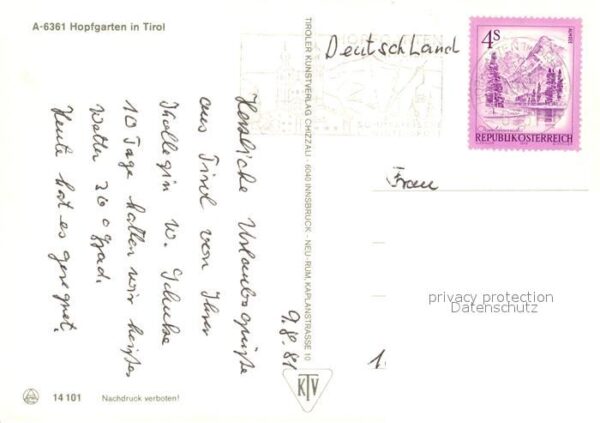 A-6361 Hopfgarten in Tirol
Herzliche Urlaubsgrüße
aus Tirol von Ihrer
Kollegin W. Schulze
10 Tage hatten wir heißes
Wetter 36 Grad.
Heute hat es geregnet.
9.8.81
14 101 Nachdruck verboten!
TIROLER KUNSTVERLAG CHIZZALI · 6040 INNSBRUCK - NEU-RUM, KAPLANSTRASSE 10
KTV
HOPFGARTEN
Deutschland
4 S
ALMSEE
REPUBLIK ÖSTERREICH
Frau
privacy protection
Datenschutz
1.